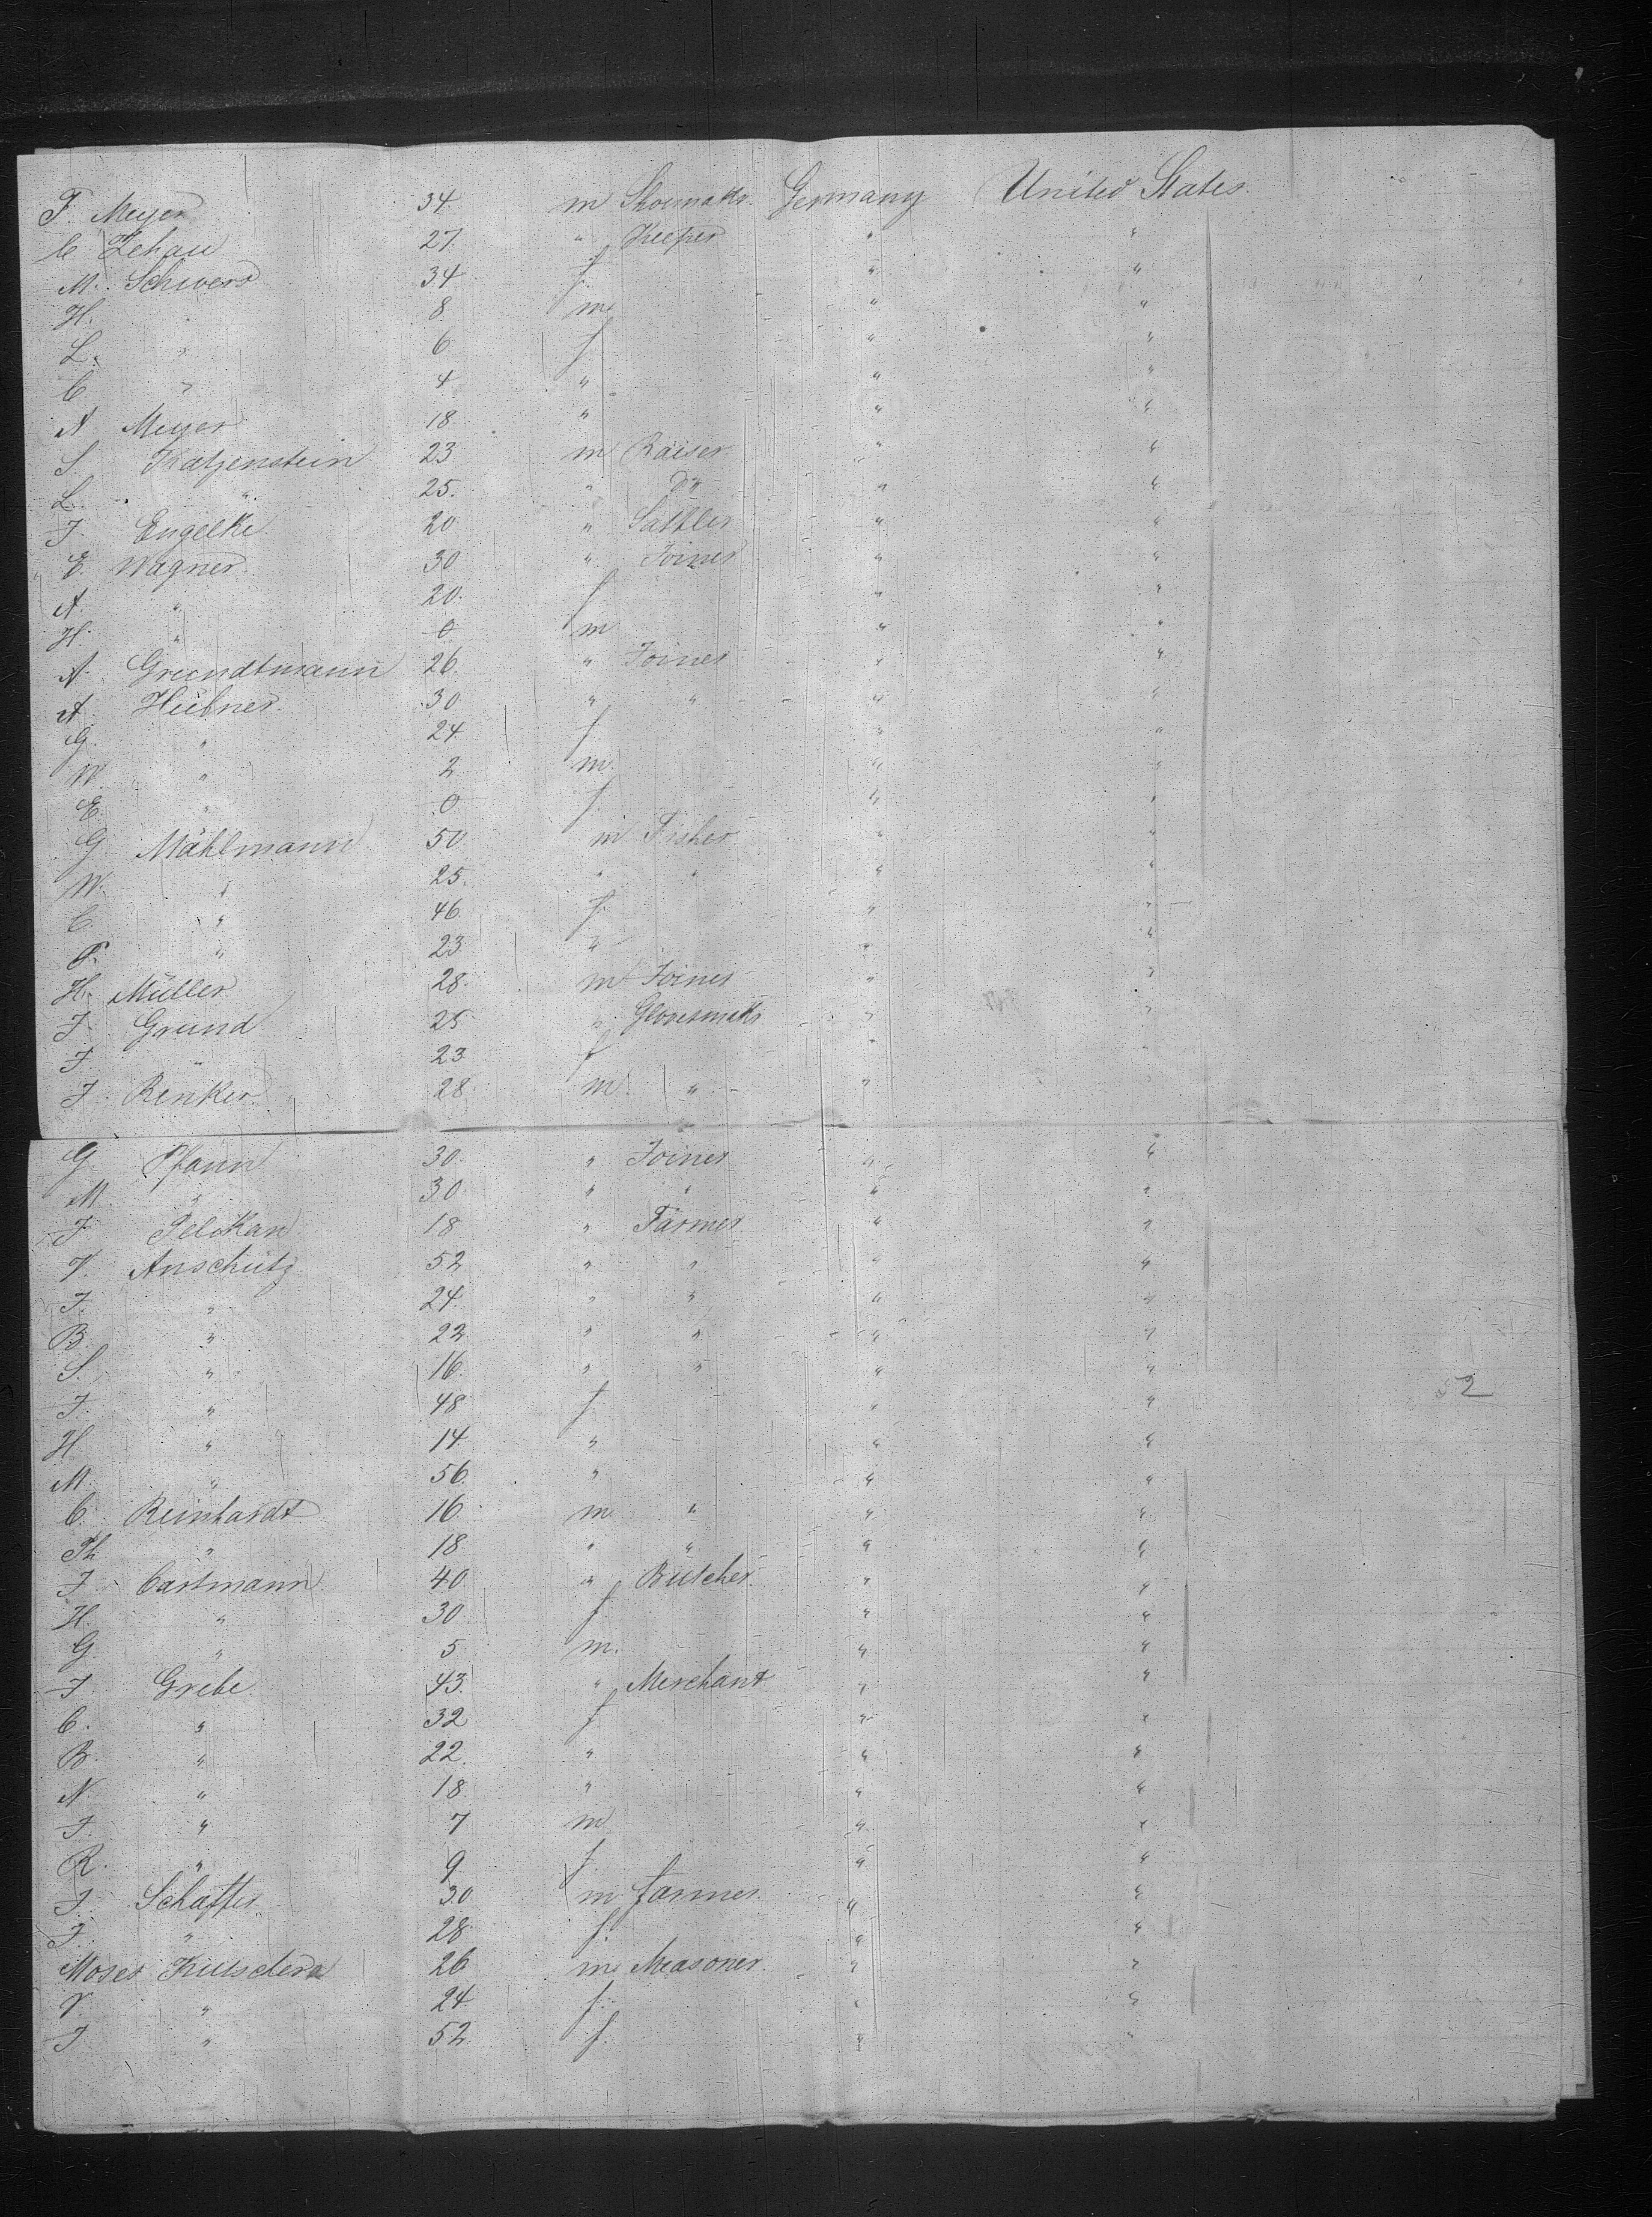 F. Meyer 34 m Shoemakr. Germany United States.
C Zehau 27. " Keeper " "
M. Schwers 34 f. " "
H. " 8 m. " "
L. " 6 f " "
C " 4 " " "
A Meyer 18 " " "
S. Katzenstein 23 m Raiser " "
L. " 25. " do " "
J. Engelke 20 " Sattler " "
E. Wagner. 30 " Joiner " "
A. " 20. f " "
H. " 0 m. " "
A. Grundtmann 26. " Joiner " "
A. Hübner. 30 " " " "
G. " 24 f " "
W. " 2 m. " "
E. " 0 f. " "
G. Mählmann 50 m Fisher " "
W. " 25. " " " "
C. " 46. f. " "
P. " 23 " " "
H. Müller 28. m Joiner " "
J. Grund 25 " Glovesmakr " "
J. " 23 f " "
J. Renker. 28. m " " "
G. Pfann 30. " Joiner " "
M. " 30. " " " "
J. Pelikan 18 " Farmer " "
V. Anschütz 52 " " " "
J. " 24. " " " "
B. " 22 " " " "
S. " 16. " " " "
J. " 48 f. " " 52
H. " 14 " " "
M. " 56. " " "
C. Reinhardt 16. m " " "
Th " 18 " " " "
J. Cartmann 40. " Butcher. " "
H. " 30 f " "
G. " 5 m. " "
J. Grebe 43. " Merchant " "
C. " 32 f " "
B. " 22. " " "
N. " 18 " " "
J. " 7 m " "
R. " 9 f. " "
J. Schaffer. 30 m farmer. " "
J. " 28 f. " "
Moses Kutschera 26 m Measoner. " "
V. " 24. f. " "
J " 52. f. " "